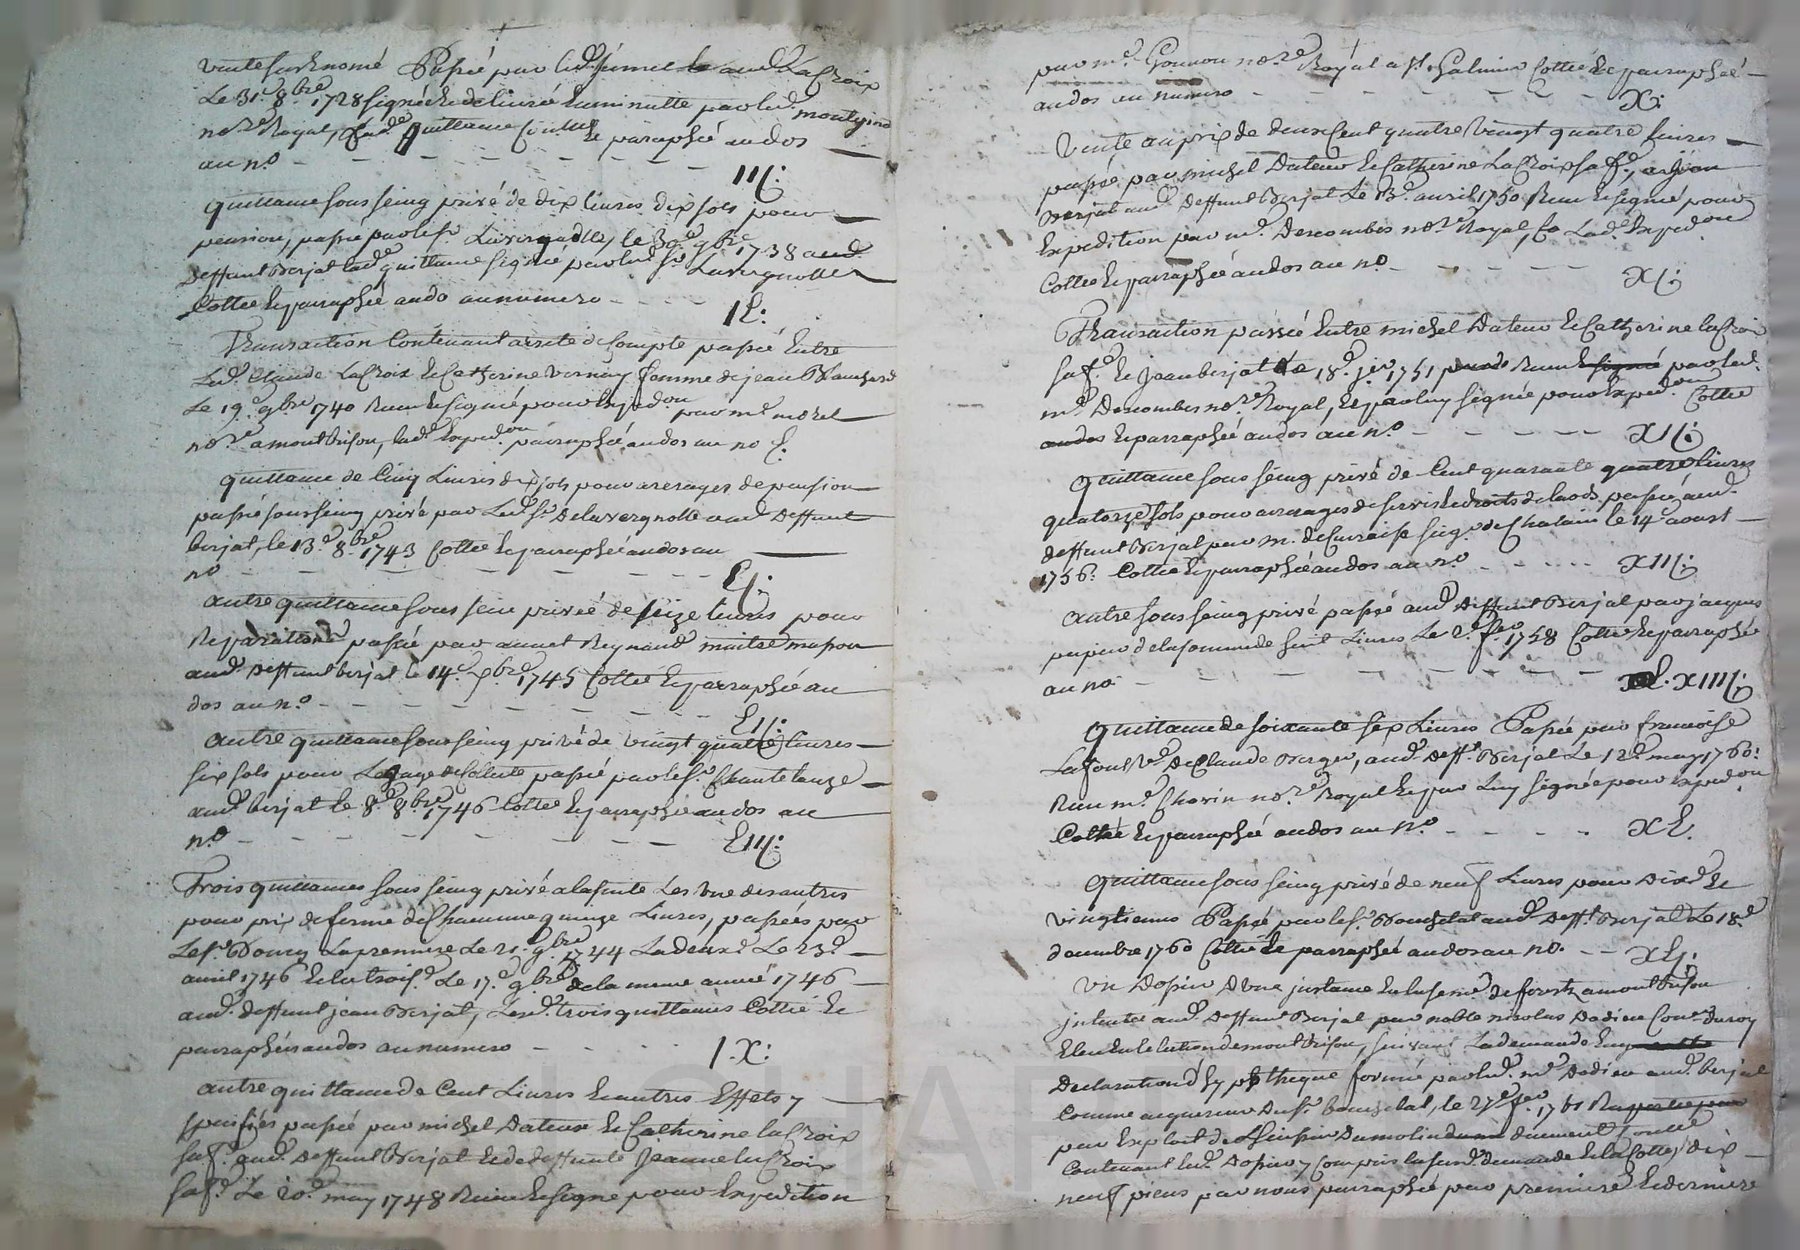 vente susd. nomé Passé par led. jumel aud. LaCroix
Le 31e 8bre 1728 signé et delivré en minutte par led. montgind
nore Royal, Lade quittance Cottée et paraphé au dos
au no
III.
quittance sous seing privé de dix livres dix sols pour
pension, passée par le sr Lavergnolle, le 30e 9bre 1738 aud.
deffunt Berjat lade quittance signée par led. sr Lavergnolle
Cottée et parraphée au do au numero
IV.
Transaction Contenant arreté de Compte passé Entre
Led. Claude LaCroix et Catherine Vernay femme de jean Blanchard
Le 19e 9bre 1740 Reçeu et signé pour Expedon par me morel
nore a montbrison, lade Expedon parraphée au dos au no V.
quittance de Cinq Livres dix sols pour arerages de pension
passé sous seing privé par Led. Sr Delavergnolle aud. Deffunt
berjat, le 13e 8bre 1743 Cottée et parraphée au dos au
no
VI.
autre quittance sous sein privée de seize livres pour
Reparations passée par annet Reynaud maitre masson
aud. Deffunt berjat le 14e Xbre 1745 Cottée et parraphée au
dos au no
VII.
autre quittance sous seing privé de vingt quatre livres
six sols pour passée par le sr Chantelauze
aud. berjat le 8e 8bre 1746 Cottée et parraphée au dos au
no
VIII.
Trois quittances sous seing privé a la suite Les Une des autres
pour prix de ferme de Chacune quinze Livres, passées par
Le sr Dourg La premiere Le 21e 9bre 1744 La deuxe Le 23e
avril 1746 et la troise Le 17e 9bre de la meme année 1746
aud. deffunt jean Berjat, Lesd. trois quittances Cottée et
parraphées au dos au numero
I.X.
autre quittance de Cent Livres et autres Effets y
spécifiés passée par michel Dateur et Catherine laCroix
sa fe aud. Deffunt Berjat et de deffunte Jeanne laCroix
sa fe Le 20e may 1748 Reçeu et signé pour Expedition
par me Gonnon nore Royal a st. Galmier Cottée et parraphée
au dos au numero
X.
Vente au prix de deux Cent quatre Vingt quatre livres
passée par michel Dateur et Catherine LaCroix sa fe, a jean
Berjat aud. Deffunt Berjat Le 13e avril 1750 Reçeu et signé pour
Expedition par me Descombes nore Royal, Lade Expedon
Cottée et parraphée au dos au no
XI.
Transaction passée Entre michel Dateur et Catherine laCroix
sa fe et Jean berjat Le 18e jer 1751 Reçeu et signé par led.
me Descombes nore Royal, et par luy signée pour Expedon Cottée
au dos et parraphée au dos au no
XII.
quittance sous seing privé de Cent quarante quatre livres
quatorze sols pour arerages de servis et droits de laods passée aud.
deffunt Berjat par m. seigr de Chalain le 14e aoust
1756. Cottée et parraphée au dos au no
XIII.
autre sous seing privé passée aud. Deffunt Berjat par jacques
papier de la somme de sent Livres Le 2e fer 1758 Cottée et parraphée
au no
XIIII.
quittance de soixante sex Livres Passée par francoise
Lafont Ve De Claude Berger, aud. Defft Berjat Le 12e may 1760.
Reçeu me Chovin nore Royal et par Luy signée pour Expedon
Cottée et parraphée au dos au no
XV.
quittance sous seing privé de neuf Livres pour Dixe et
vingtiemes Passée par le sr Bouchetal aud. Defft Berjat Le 18e
decembre 1760 Cottée et parraphée au dos au no.
XVI.
Un Dosier D'une justance En la sene de forest a montbrison
jntentée aud. Deffunt Berjat par noble nicolas Dodieu Coner du roy
Eleu En l'election de montbrison, suivant La demande En
Declaration d'hypotheque formée par led. me Dodieu aud. berjat
Comme acquereur Du sr bouchetal, le 27e fer 1761
par Exploit de Dumolin duement
Contenant led. Dosier y Compris la sude demande et la Cotte, dix
neuf pieces par nous parraphée par premiere et derniere